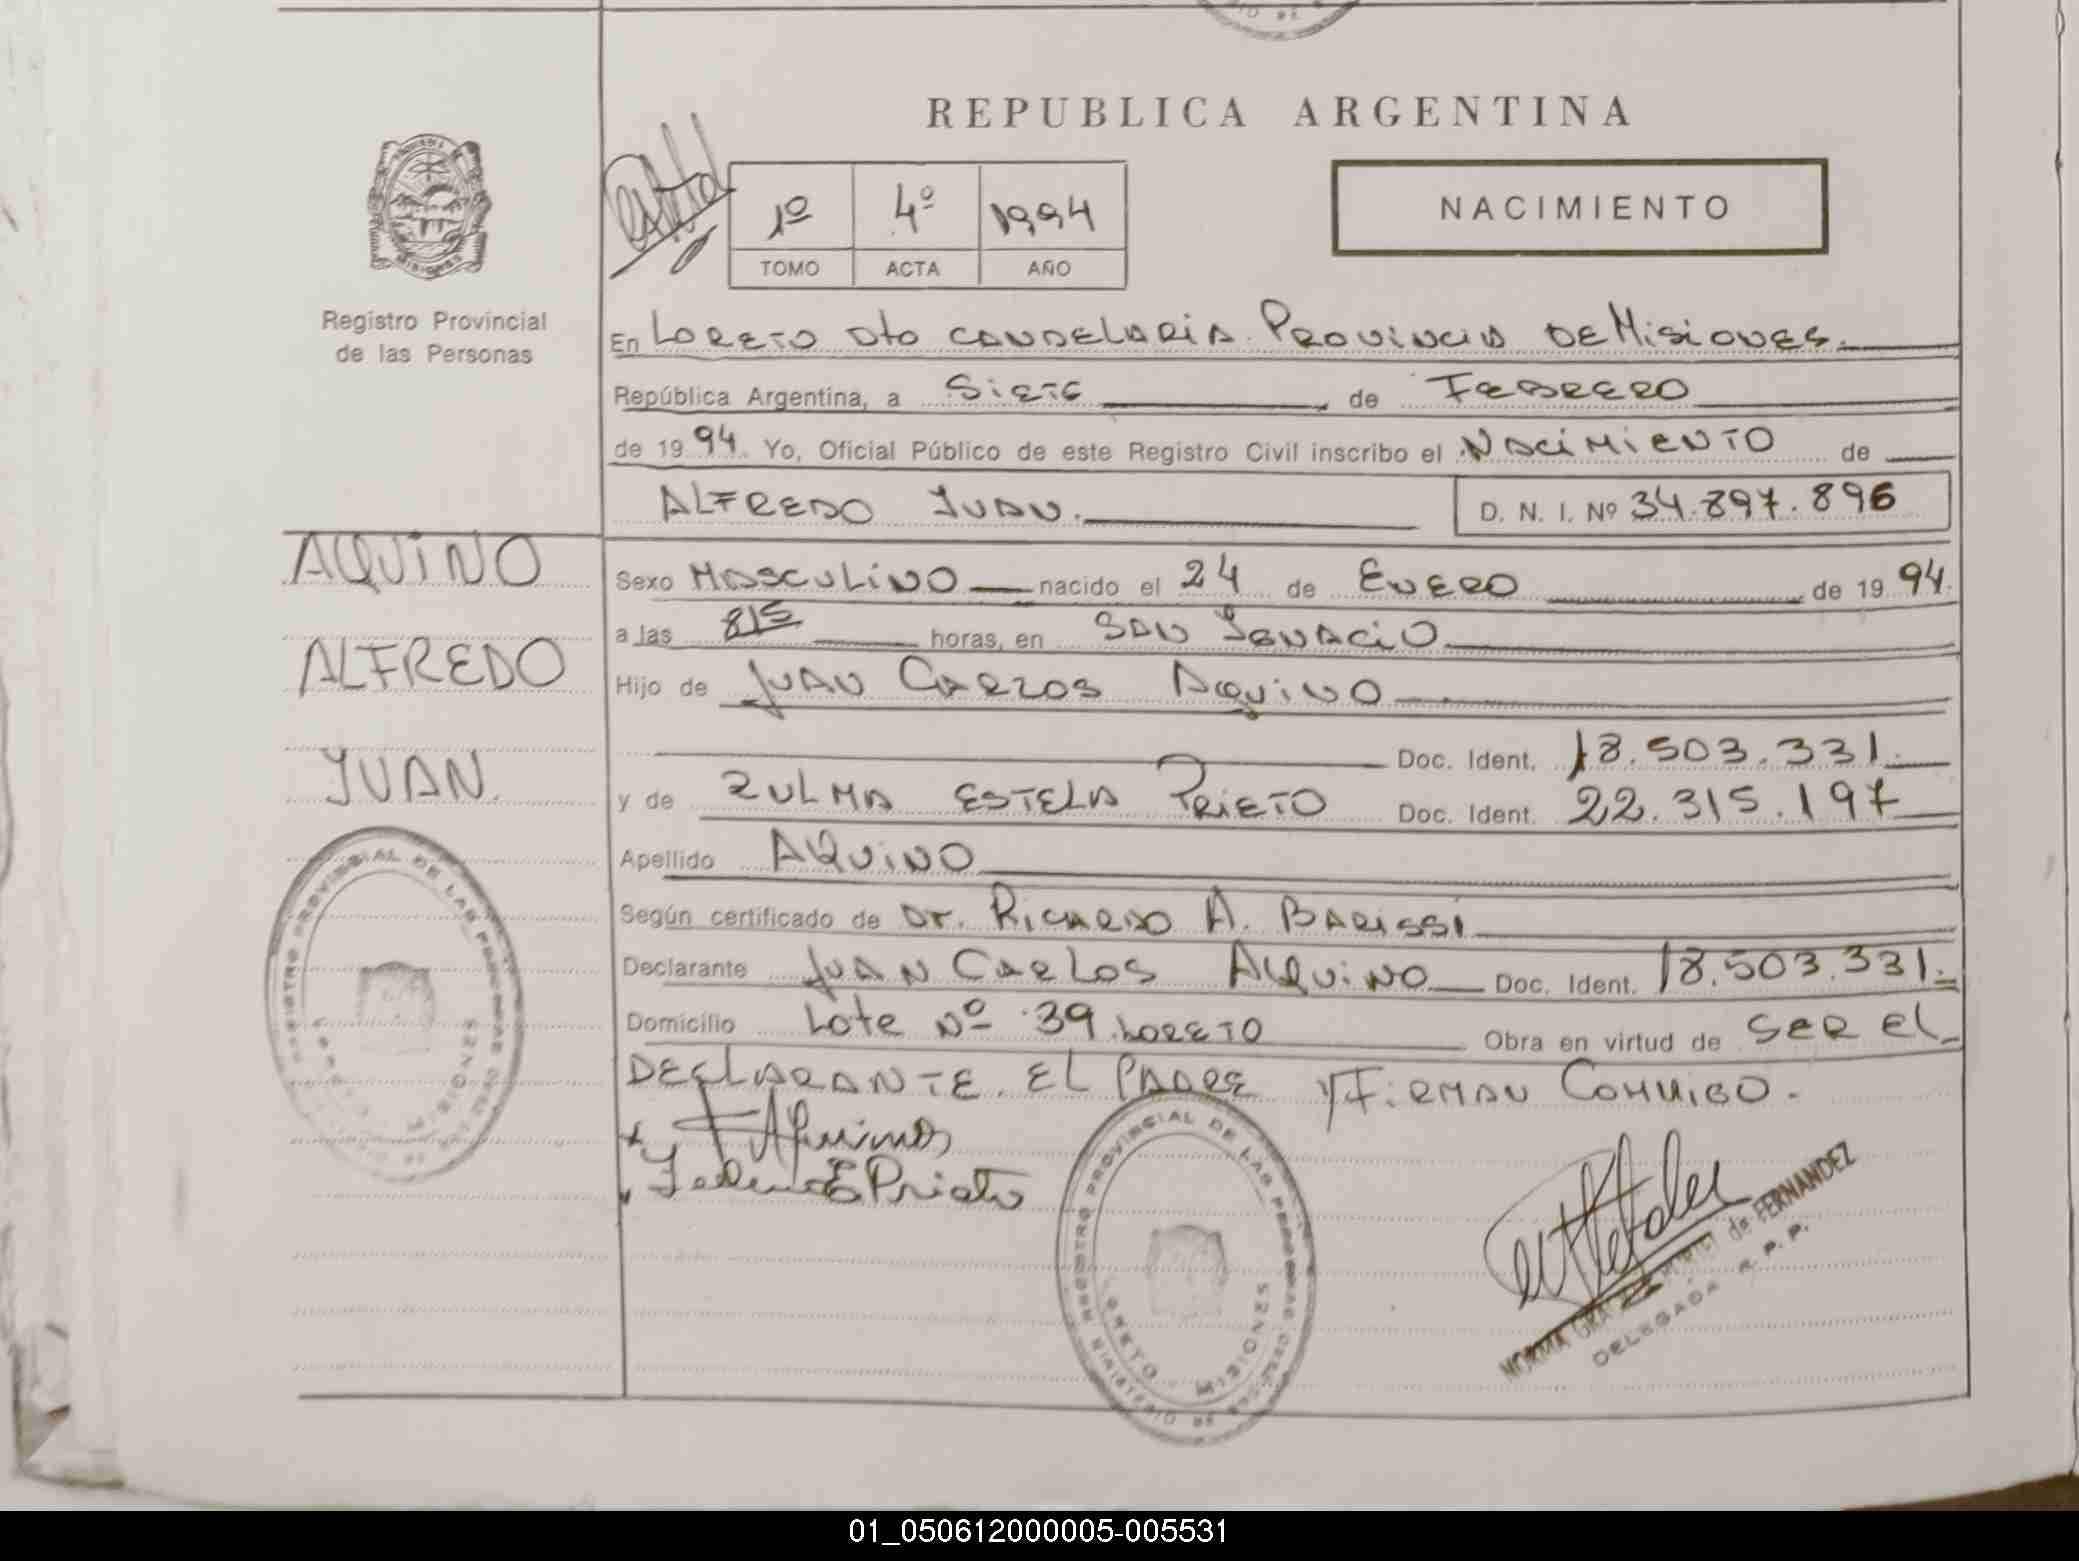 REPUBLICA ARGENTINA
1º 4º 1994
TOMO ACTA AÑO
NACIMIENTO
Registro Provincial
de las Personas
En LORETO Dto CANDELARIA. PROVINCIA DE MISIONES.
República Argentina, a SIETE de FEBRERO
de 1994. Yo, Oficial Público de este Registro Civil inscribo el NACIMIENTO de
ALFREDO JUAN. D. N. I. Nº 34.897.896
AQUINO
ALFREDO
JUAN.
Sexo MASCULINO nacido el 24 de ENERO de 1994.
a las 815 horas, en SAN IGNACIO
Hijo de JUAN CARLOS AQUINO
Doc. Ident. 18.503.331.
y de ZULMA ESTELA PRIETO Doc. Ident. 22.315.197
Apellido AQUINO
Según certificado de Dr. RICARDO A. BARISSI
Declarante JUAN CARLOS AQUINO Doc. Ident. 18.503.331.
Domicilio Lote Nº 39. LORETO Obra en virtud de SER EL
DECLARANTE. EL PADRE Y FIRMAN CONMIGO.
E Prieto
REGISTRO PROVINCIAL DE LAS PERSONAS
LORETO MISIONES
REGISTRO PROVINCIAL DE LAS PERSONAS
MINISTERIO DE
LORETO MISIONES
NORMA de FERNANDEZ
DELEGADA R. P. P.
01_050612000005-005531